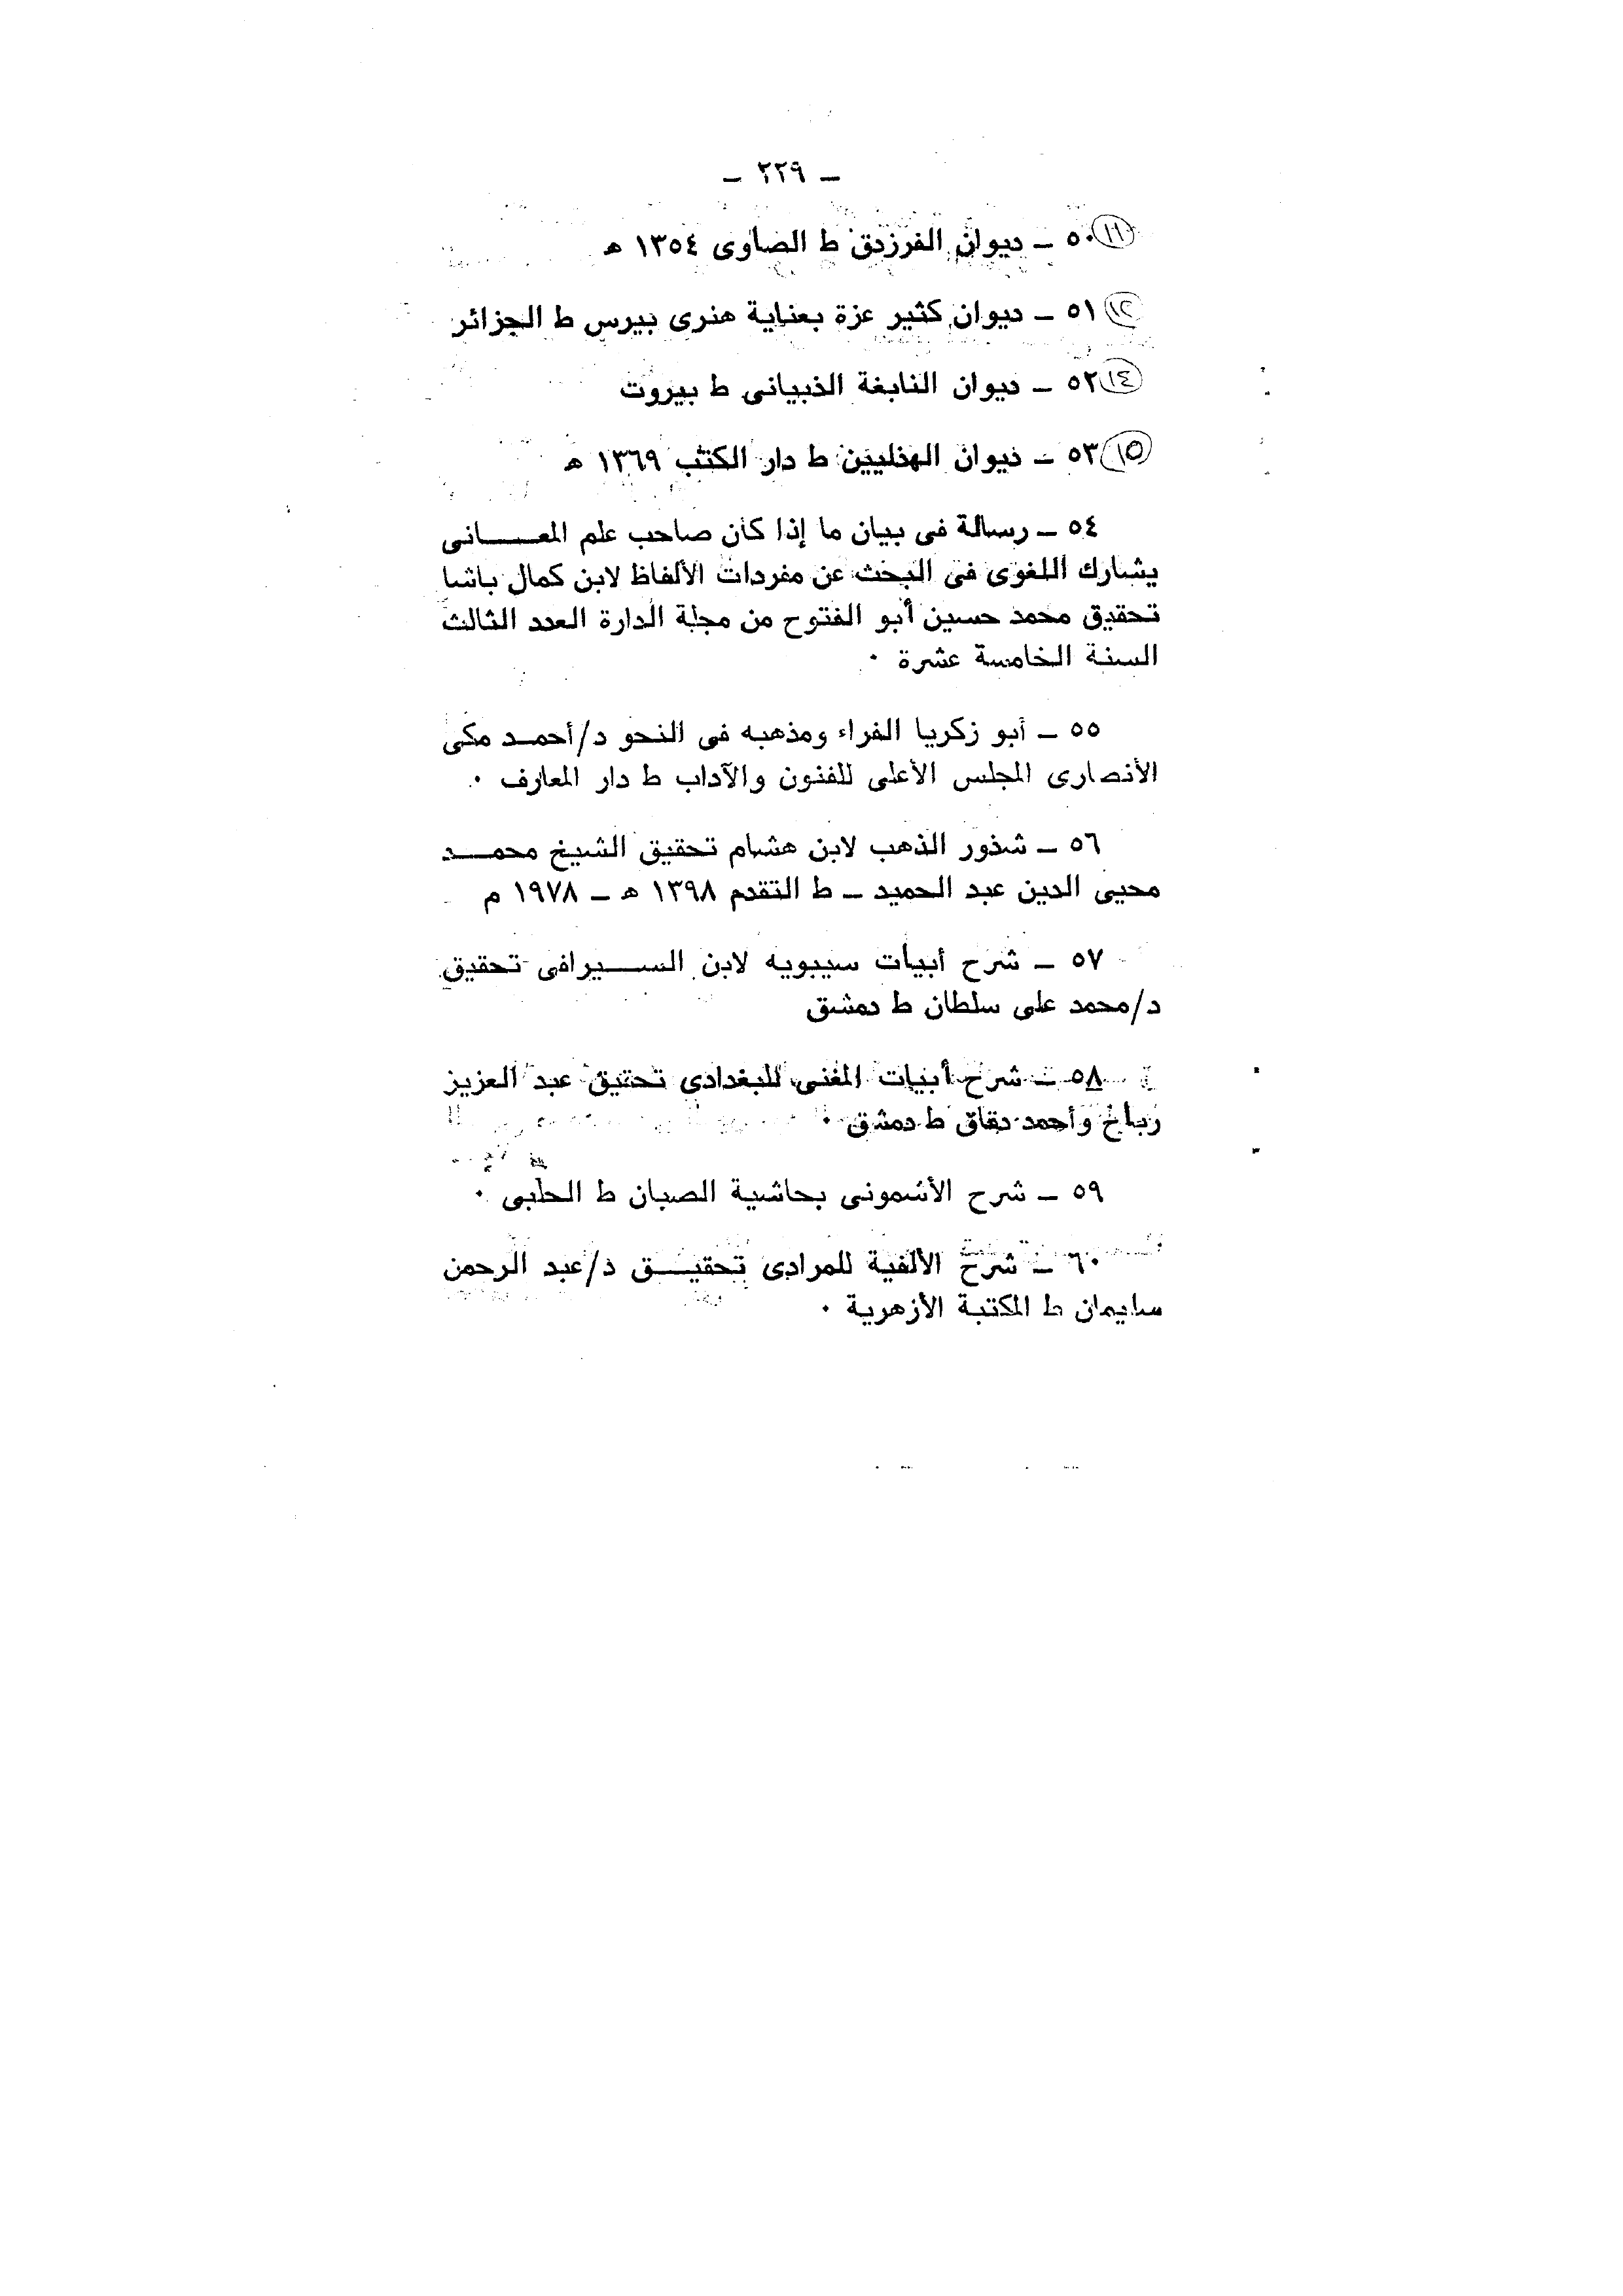 ــ ٢٢٩ ــ
(١١) ٥٠ ــ ديوان الفرزدق ط الصاوى ١٣٥٤ ه
(١٢) ٥١ ــ ديوان كثير عزة بعناية هنرى بيرس ط الجزائر
(١٤) ٥٢ ــ ديوان النابغة الذبيانى ط بيروت
(١٥) ٥٣ ــ ديوان الهذليين ط دار الكتب ١٣٦٩ ه
٥٤ ــ رسالة فى بيان ما إذا كان صاحب علم المعــــانى
يشارك اللغوى فى البحث عن مفردات الألفاظ لابن كمال باشا
تحقيق محمد حسين أبو الفتوح من مجلة الدارة العدد الثالث
السنة الخامسة عشرة ٠
٥٥ ــ أبو زكريا الفراء ومذهبه فى النحو د/أحمــد مكى
الأنصارى المجلس الأعلى للفنون والآداب ط دار المعارف ٠
٥٦ ــ شذور الذهب لابن هشام تحقيق الشيخ محمــــد
محيى الدين عبد الحميد ــ ط التقدم ١٣٩٨ ه ــ ١٩٧٨ م
٥٧ ــ شرح أبيات سيبويه لابن الســــيرافى تحقيق
د/محمد على سلطان ط دمشق
٥٨ ــ شرح أبيات المغنى للبغدادى تحقيق عبد العزيز
رباح وأحمد دقاق ط دمشق ٠
٥٩ ــ شرح الأشمونى بحاشية الصبان ط الحلبى ٠
٦٠ ــ شرح الألفية للمرادى تحقيــــق د/عبد الرحمن
سليمان ط المكتبة الأزهرية ٠